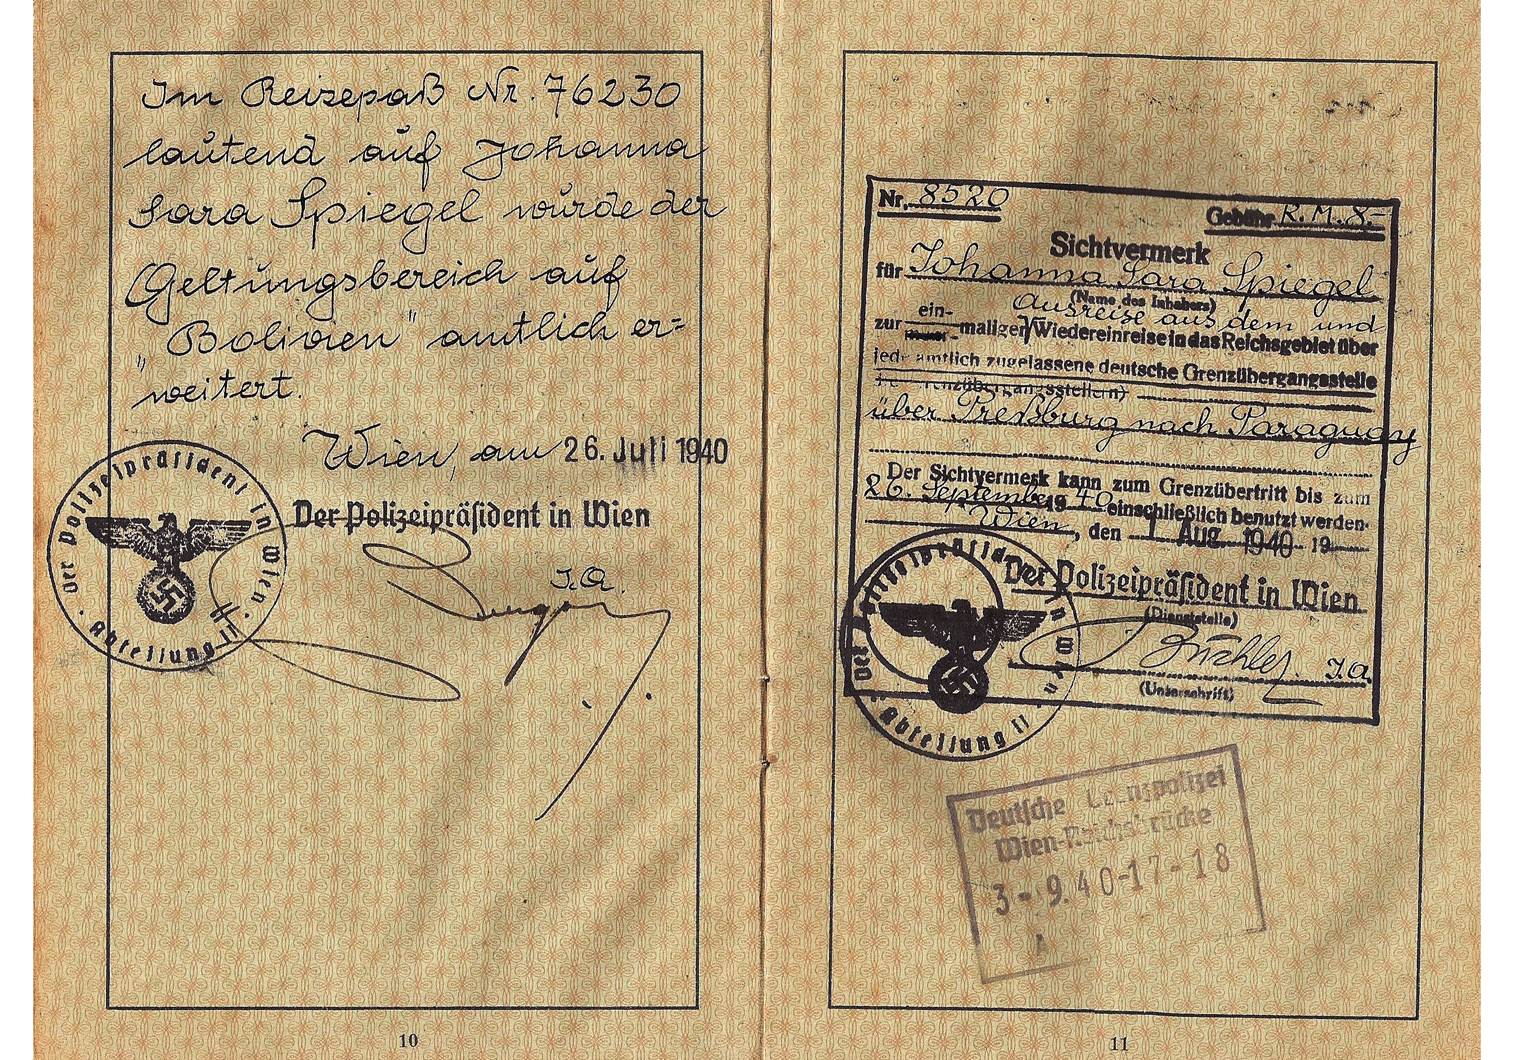 Im Reisepaß Nr. 76230
lautend auf Johanna
Sara Spiegel wurde der
Geltungsbereich auf
"Bolivien" amtlich er=
weitert.
Wien, am 26. Juli 1940
Der Polizeipräsident in Wien
I.A.
Der Polizeipräsident in Wien
Abteilung II
10
Nr. 8520
Gebühr R.M. 8.-
Sichtvermerk
für Johanna Sara Spiegel
(Name des Inhabers)
Ausreise aus dem und
zur ein-maligen Wiedereinreise in das Reichsgebiet über
jede amtlich zugelassene deutsche Grenzübergangsstelle
Grenzübergangsstellen)
über Preßburg nach Paraguay
Der Sichtvermerk kann zum Grenzübertritt bis zum
26. September 1940 einschließlich benutzt werden.
Wien, den 1. Aug. 1940 19
Der Polizeipräsident in Wien
(Dienststelle)
I.A.
(Unterschrift)
Der Polizeipräsident in Wien
Abteilung II
Deutsche Grenzpolizei
Wien-Reichsbrücke
3-9.40-17-18
11